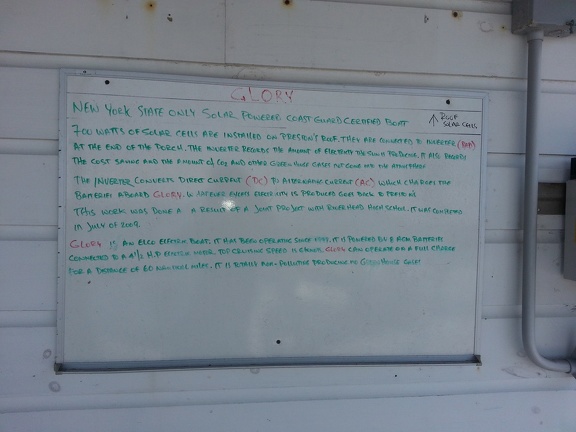 GLORY
NEW YORK STATE ONLY SOLAR POWERED COAST GUARD CERTIFIED BOAT
↑ ROOF
SOLAR CELLS
700 WATTS OF SOLAR CELLS ARE INSTALLED ON PRESTON'S ROOF. THEY ARE CONNECTED TO INVERTER
AT THE END OF THE PORCH. THE INVERTER RECORDS THE AMOUNT OF ELECTRICITY THE SUN IS PRODUCING. IT ALSO RECORDS
THE COST SAVING AND THE AMOUNT OF CO2 AND OTHER GREEN HOUSE GASES NOT GOING INTO THE ATMOSPHERE
THE INVERTER CONVERTS DIRECT CURRENT (DC) TO ALTERNATING CURRENT (AC) WHICH CHARGES THE
BATTERIES ABOARD GLORY. WHATEVER EXCESS ELECTRICITY IS PRODUCED GOES BACK TO
THIS WORK WAS DONE AS A RESULT OF A JOINT PROJECT WITH RIVERHEAD HIGH SCHOOL. IT WAS COMPLETED
IN JULY OF 2009.
GLORY IS AN ELCO ELECTRIC BOAT. IT HAS BEEN OPERATING SINCE IT IS POWERED BY BATTERIES
CONNECTED TO A 4 1/2 H.P ELECTRIC MOTOR. TOP CRUISING SPEED IS GLORY CAN OPERATE ON A FULL CHARGE
FOR A DISTANCE OF 60 NAUTICAL MILES. IT IS TOTALLY NON-POLLUTING PRODUCING NO GREENHOUSE GASES